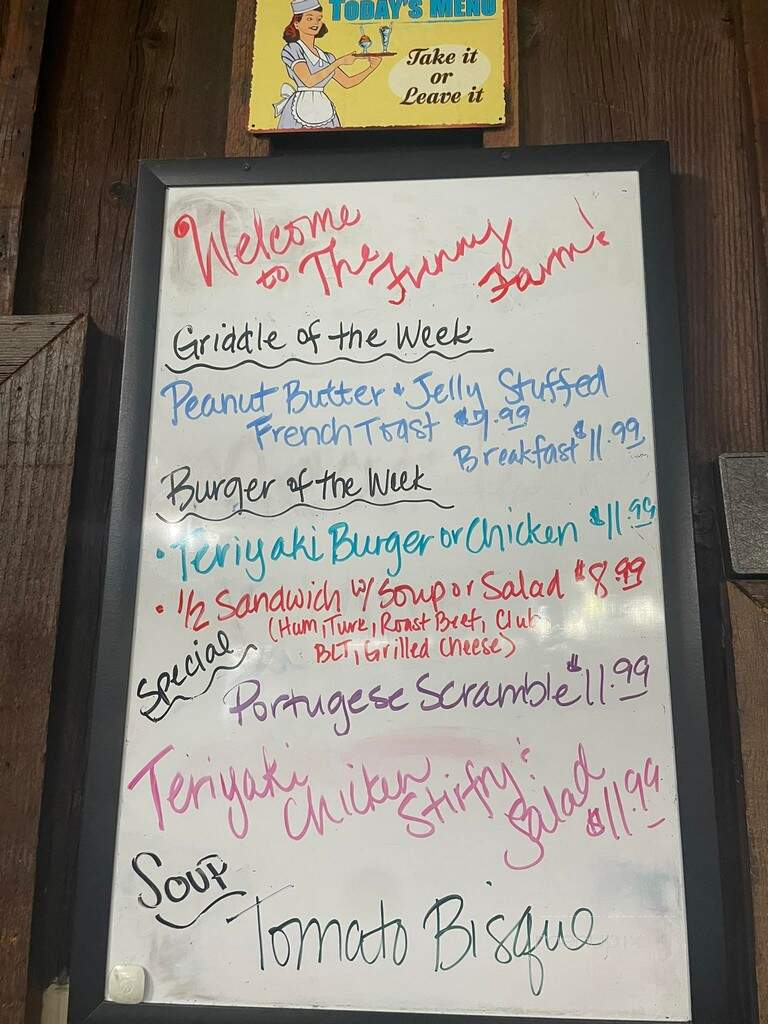 TODAY'S MENU
Take it
or
Leave it
Welcome
to The Funny
Farm!
Griddle of the Week
Peanut Butter & Jelly Stuffed
French Toast $9.99
Breakfast $11.99
Burger of the Week
• Teriyaki Burger or Chicken $11.99
• 1/2 Sandwich w/ Soup or Salad $8.99
(Ham, Turk, Roast Beef, Club,
BLT, Grilled Cheese)
Special
Portugese Scramble $11.99
Teriyaki Chicken Stirfry
Salad
$11.99
Soup
Tomato Bisque